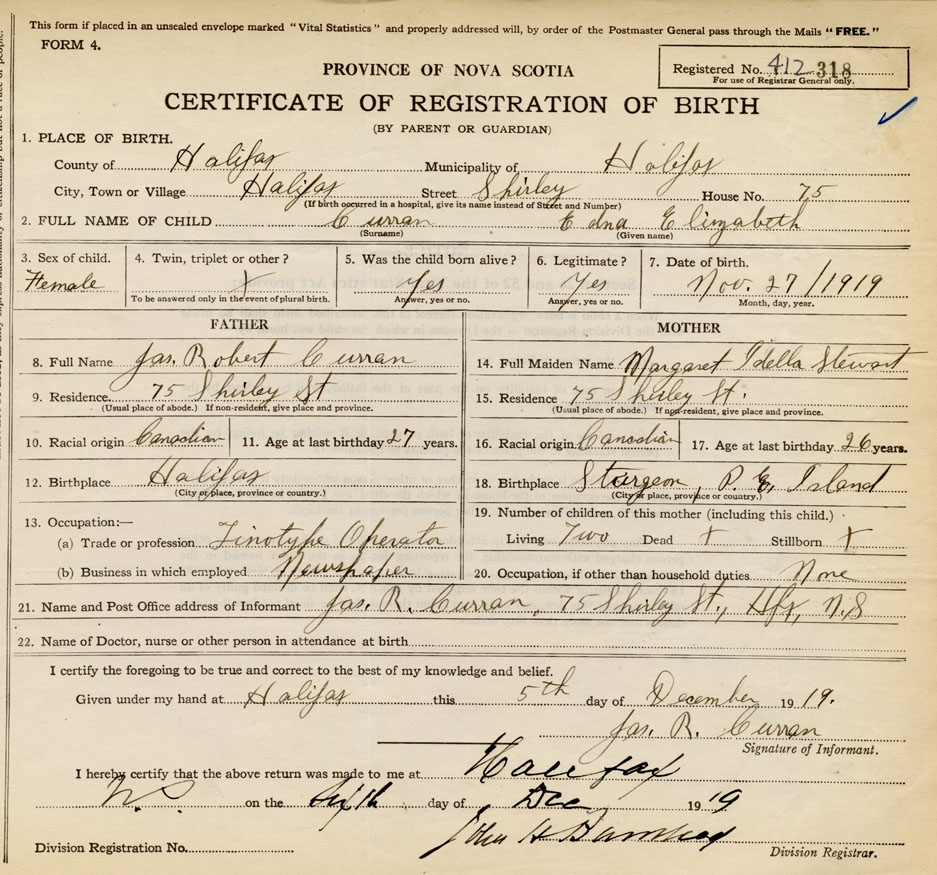 This form if placed in an unsealed envelope marked "Vital Statistics" and properly addressed will, by order of the Postmaster General pass through the Mails "FREE."
FORM 4.
Registered No. 412 318
For use of Registrar General only.
PROVINCE OF NOVA SCOTIA
CERTIFICATE OF REGISTRATION OF BIRTH
(BY PARENT OR GUARDIAN)
1. PLACE OF BIRTH.
County of Halifax Municipality of Halifax
City, Town or Village Halifax Street Shirley House No. 75
(If birth occurred in a hospital, give its name instead of Street and Number)
2. FULL NAME OF CHILD Curran Edna Elizabeth
(Surname) (Given name)
3. Sex of child. 4. Twin, triplet or other? 5. Was the child born alive? 6. Legitimate? 7. Date of birth.
Female X Yes Yes Nov. 27/1919
To be answered only in the event of plural birth. Answer, yes or no. Answer, yes or no. Month, day, year.
FATHER
8. Full Name Jas. Robert Curran
9. Residence. 75 Shirley St
(Usual place of abode.) If non-resident, give place and province.
10. Racial origin Canadian 11. Age at last birthday 27 years.
12. Birthplace Halifax
(City or place, province or country.)
13. Occupation:—
(a) Trade or profession Linotype Operator
(b) Business in which employed Newspaper
MOTHER
14. Full Maiden Name Margaret Idella Stewart
15. Residence 75 Shirley St.
(Usual place of abode.) If non-resident, give place and province.
16. Racial origin Canadian 17. Age at last birthday 26 years.
18. Birthplace Sturgeon, P. E. Island
(City or place, province or country.)
19. Number of children of this mother (including this child.)
Living Two Dead X Stillborn X
20. Occupation, if other than household duties None
21. Name and Post Office address of Informant Jas. R. Curran, 75 Shirley St., Hfx, N.S
22. Name of Doctor, nurse or other person in attendance at birth
I certify the foregoing to be true and correct to the best of my knowledge and belief.
Given under my hand at Halifax this 5th day of December 1919.
Jas. R. Curran
Signature of Informant.
I hereby certify that the above return was made to me at Halifax
N.S. on the day of Dec 1919
John H
Division Registration No. Division Registrar.